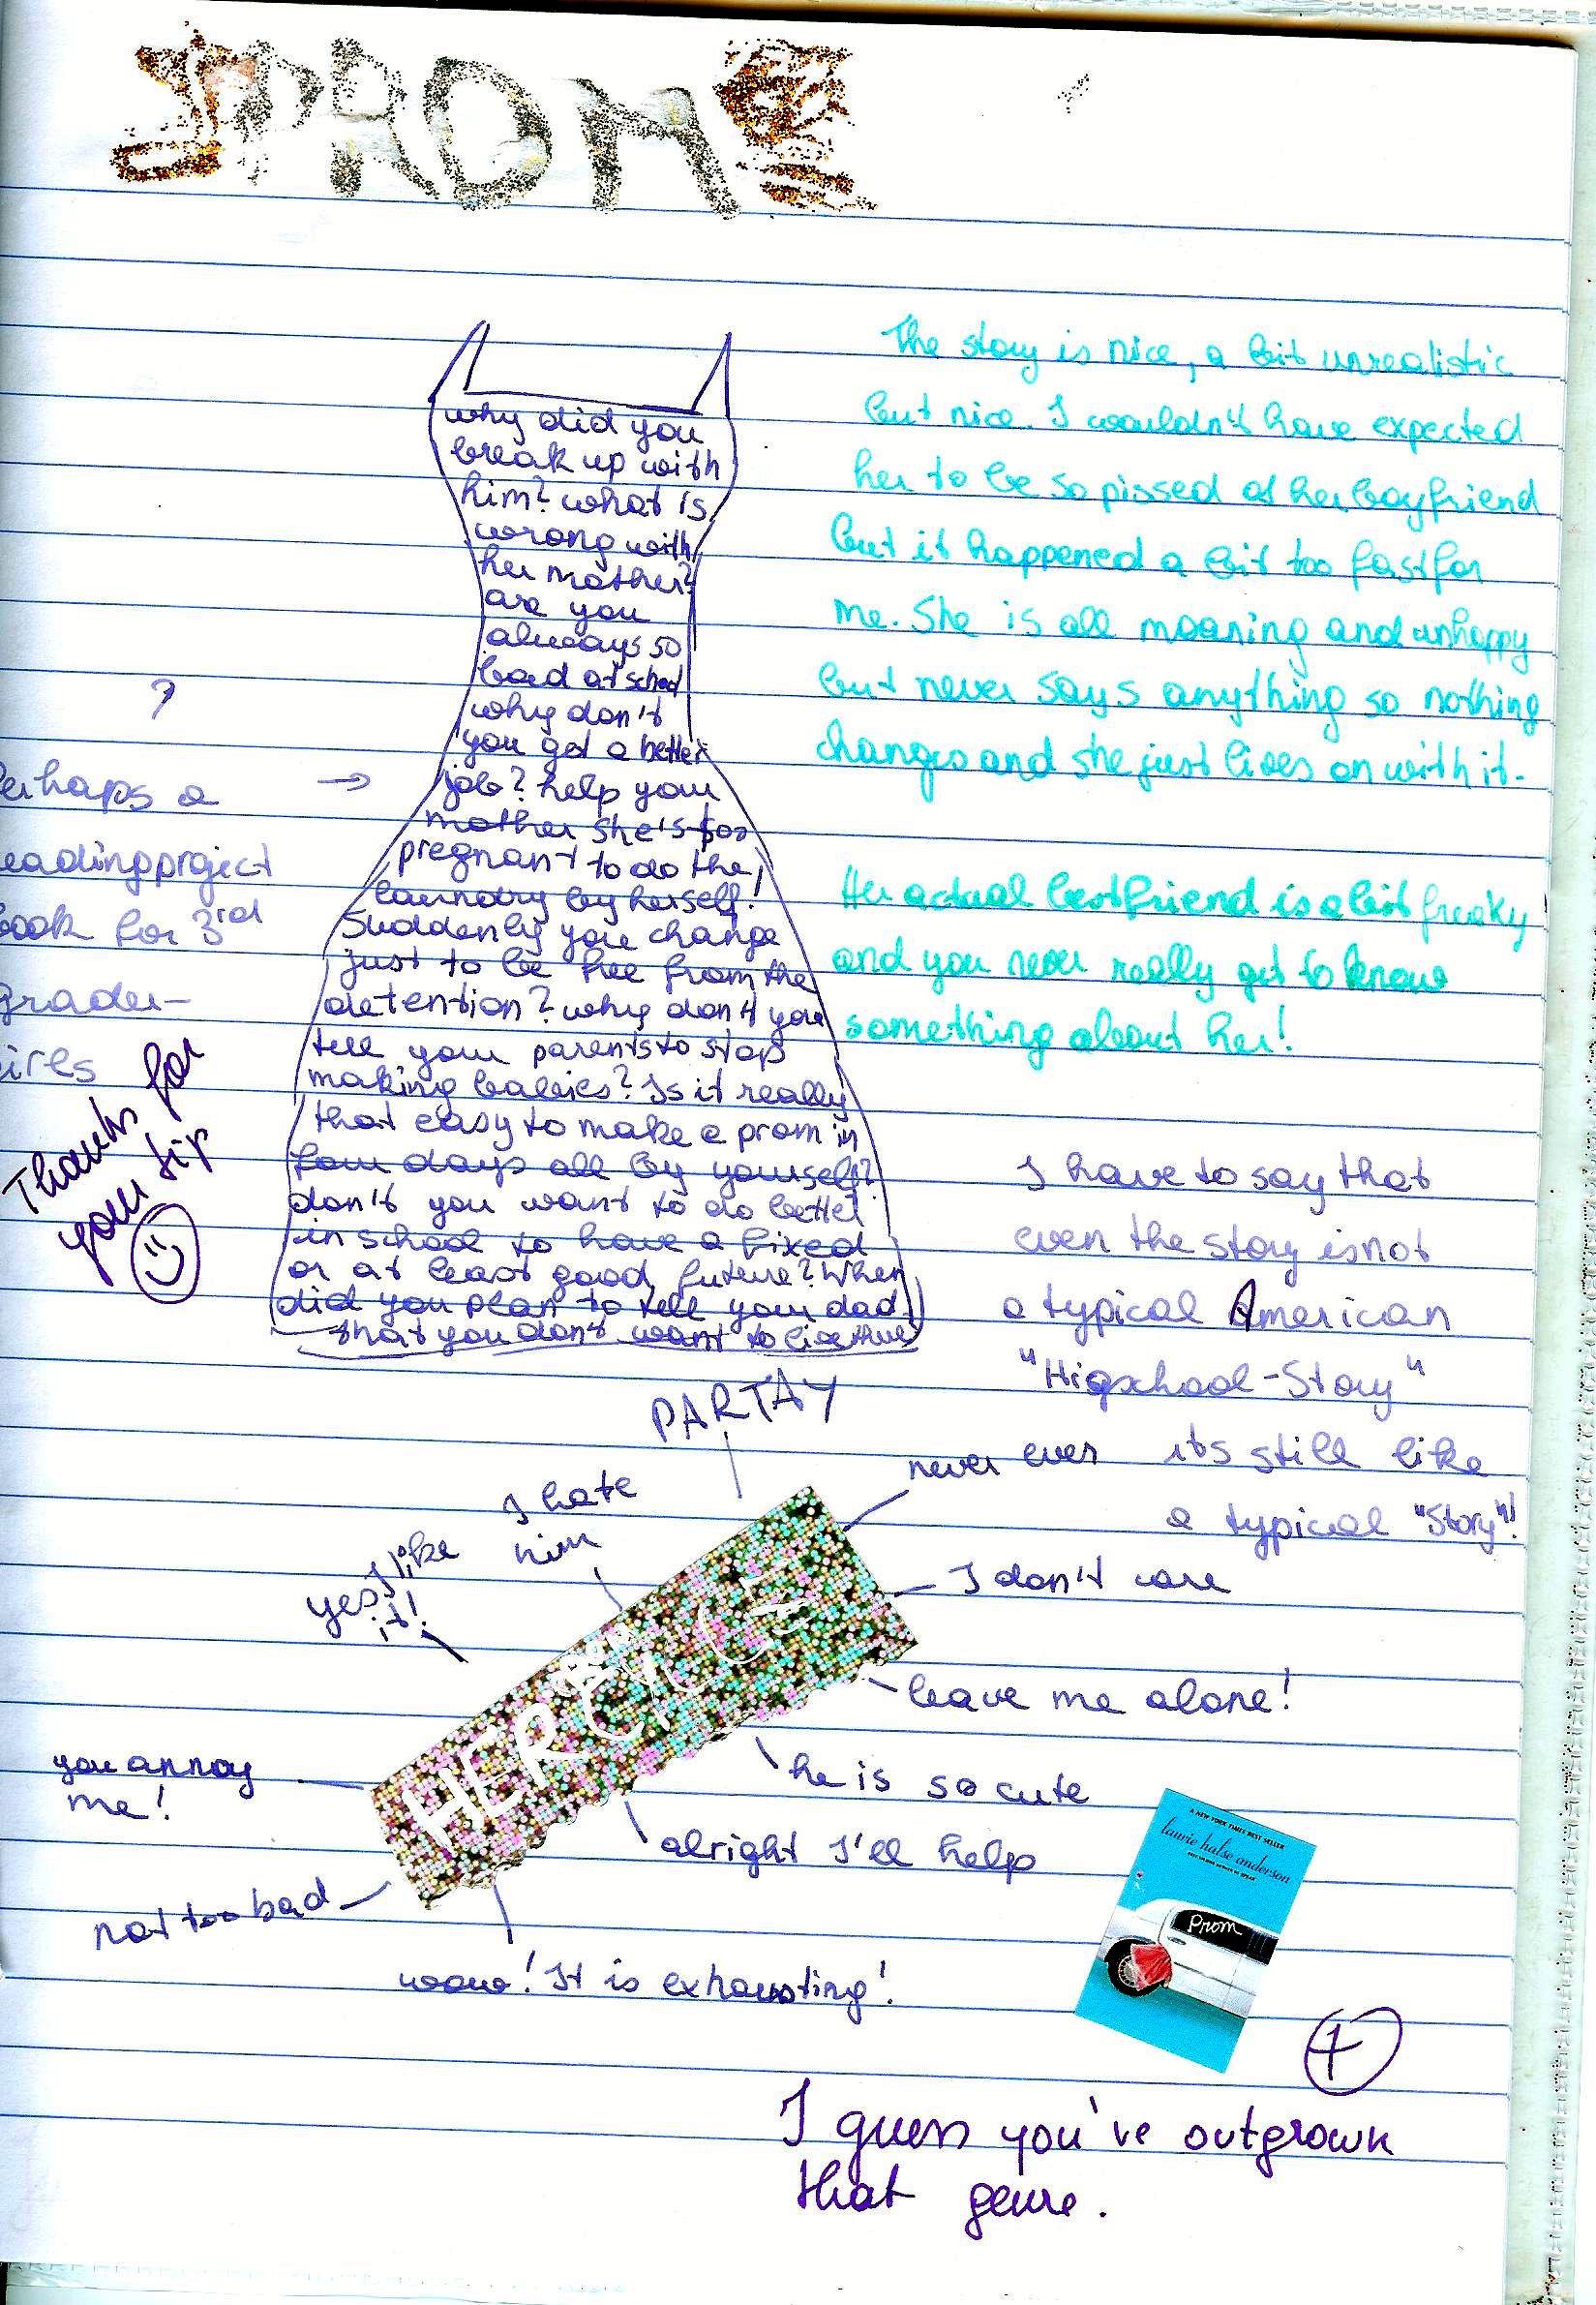 PROM
The story is nice, a bit unrealistic
but nice. I wouldn't have expected
her to be so pissed at her boyfriend
but it happened a bit too fast for
me. She is all moaning and unhappy
but never says anything so nothing
changes and she just lives on with it.
Her actual best friend is a bit freaky
and you never really get to know
something about her!
why did you
break up with
him? what is
wrong with
her mother?
are you
always so
bad at school
why don't
you get a better
job? help your
mother she's too
pregnant to do the
laundry by herself!
Suddenly you change
just to be free from the
detention? why don't you
tell your parents to stop
making babies? Is it really
that easy to make a prom in
few days all by yourself?
don't you want to do better
in school to have a fixed
or at least good future? When
did you plan to tell your dad
that you don't want to live there
?
erhaps a →
eadingproject
ook for 3rd
grader-
irls
Thanks for
your tip
I have to say that
even the story is not
a typical American
"Higschool-Story"
its still like
a typical "Story"!
PARTAY
never ever
I hate
him
yes, I like
it!
I don't care
leave me alone!
HER
he is so cute
you annoy
me!
alright I'll help
not too bad
wow! It is exhausting!
A NEW YORK TIMES BEST SELLER
laurie halse anderson
Prom
+
I guess you've outgrown
that genre.